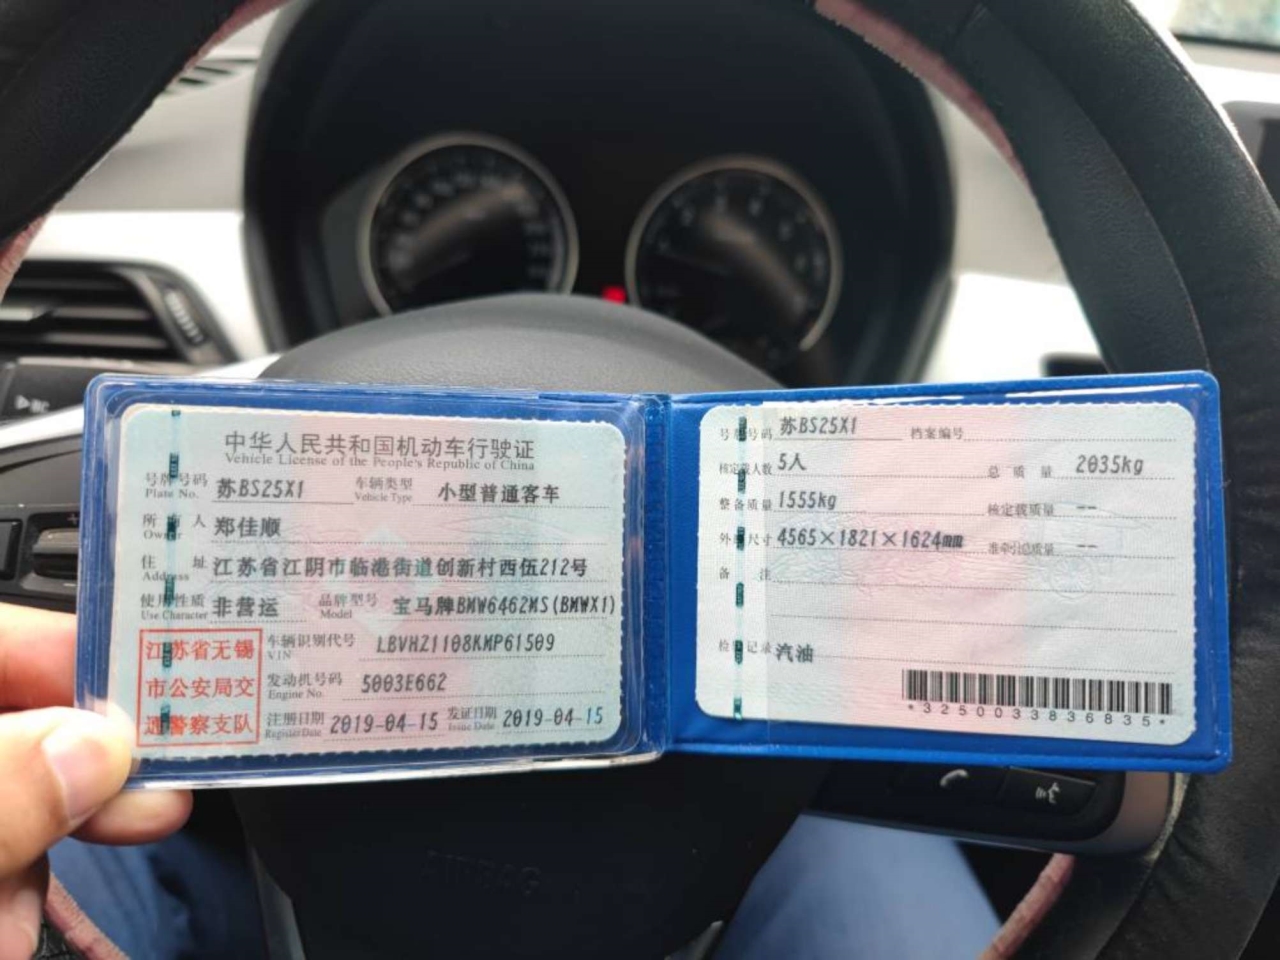 中华人民共和国机动车行驶证
Vehicle License of the People's Republic of China
号牌号码 苏BS25X1 车辆类型 小型普通客车
Plate No. Vehicle Type
所有人 郑佳顺
Owner
住址 江苏省江阴市临港街道创新村西伍212号
Address
使用性质 非营运 品牌型号 宝马牌BMW6462MS(BMWX1)
Use Character Model
江苏省无锡
市公安局交
通警察支队
车辆识别代号 LBVHZ1108KMP61509
VIN
发动机号码 5003E662
Engine No.
注册日期 2019-04-15 发证日期 2019-04-15
Register Date Issue Date
号牌号码 苏BS25X1 档案编号
核定载人数 5人 总质量 2035kg
整备质量 1555kg 核定载质量 --
外廓尺寸 4565×1821×1624mm 准牵引总质量 --
备注
检验记录 汽油
*3250033836835*
AIRBAG